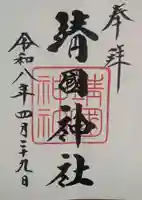 奉拝
靖國神社
令和八年四月二十九日
靖國神社